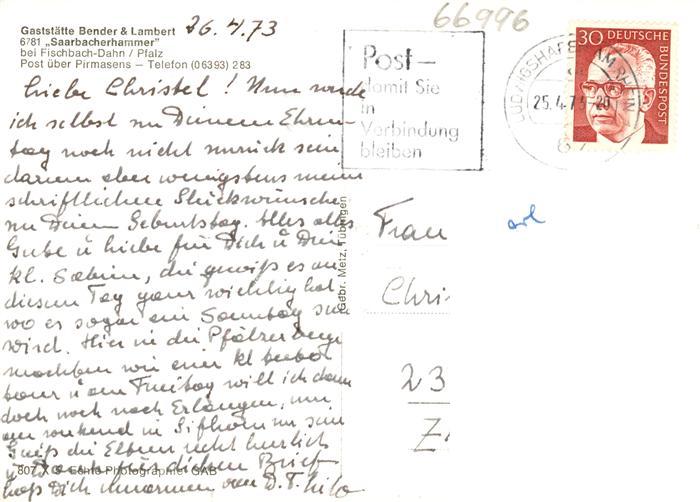 Gaststätte Bender & Lambert
6781 „Saarbacherhammer"
bei Fischbach-Dahn / Pfalz
Post über Pirmasens – Telefon (06393) 283
26.4.73
66996
Post–
damit Sie
in
Verbindung
bleiben
LUDWIGSHAFEN AM RHEIN
25.4.73-20
30 DEUTSCHE BUNDESPOST
Liebe Christel! Nun werde
ich selbst zu Deinem Ehren-
tag noch nicht zurück sein
darum aber wenigstens meine
schriftlichen Glückwünsche
zu Deinem Geburtstag. Alles alles
Gute u liebe für Dich u Dein
kl. Sabine, die gewiß es an
diesem Tag ganz wichtig hat
wo es sogar ein Sonntag sein
wird. Hier in die Pfälzerberge
machten wir eine kl
u am Freitag will ich dann
doch noch nach Erlangen, um
am in Gifhorn zu sein
Grüß die Eltern recht herzlich
u Dank für d. Brief
Dich umarmen von D. T.
Gebr. Metz, Tübingen
Frau
Chri
23
Z
807 Echte Photographie GAB